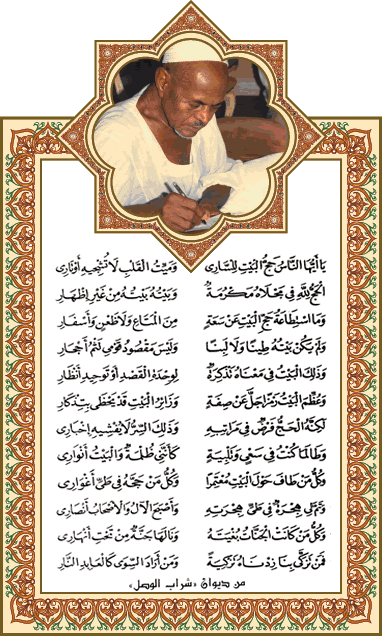 يَا أَيُّهَا النَّاسُ حَجُّ البَيْتِ لِلسَّارِي وَمَيِّتُ القَلْبِ لَا تُشْجِيهِ أَوْتَارِي
الحَجُّ لِلَّهِ فِي مَجْلَاهُ مَكْرُمَةٌ وَبَيْتُهُ بَيْتُهُ مِنْ غَيْرِ إِظْهَارِ
وَمَا اسْتِطَاعَةُ حَجِّ البَيْتِ عَنْ سَعَةٍ مِنَ المَتَاعِ وَلَا ظَعْنٍ وَأَسْفَارِ
وَلَمْ يَكُنْ بَيْتُهُ طِينًا وَلَا لَبِنًا وَلَيْسَ مَقْصُودُ قَوْمِي لَثْمُ أَحْجَارِ
وَذَلِكَ البَيْتُ فِي مَعْنَاهُ تَذْكِرَةٌ لِوِحْدَةِ القَصْدِ أَوْ تَوْحِيدِ أَنْظَارِ
وَعُظِّمَ البَيْتُ رَمْزًا جَلَّ عَنْ صِفَةٍ وَزَائِرُ البَيْتِ قَدْ يَحْظَى بِتَذْكَارِ
لَكِنَّهُ الحَجُّ فَرْضٌ فِي مَرَاتِبِهِ وَذَلِكَ السِّرُّ لَا يُفْشِيهِ إِخْبَارِي
وَطَالَمَا كُنْتُ فِي سَعْيٍ وَتَلْبِيَةٍ كَأَنَّنِي ظُلْمَةٌ وَالبَيْتُ أَنْوَارِي
وَكُلُّ مَنْ طَافَ حَوْلَ البَيْتِ مُعْتَمِرًا وَكُلُّ مَنْ حَجَّهُ فِي طَيِّ أَغْوَارِي
وَتَمَّ لِي هِجْرَةٌ فِي طَيِّ هِجْرَتِهِ وَأَصْبَحَ الآلُ وَالأَصْحَابُ أَنْصَارِي
وَكُلُّ مَنْ كَانَتْ الجَنَّاتُ بُغْيَتَهُ وَنَالَهَا جَنَّةٌ مِنْ تَحْتِ أَنْهَارِي
فَمَنْ تَزَكَّى بِنَا زِدْنَاهُ تَزْكِيَةً وَمَنْ أَرَادَ السِّوَى كَالعَابِدِ النَّارِ
من ديوان «شراب الوصل»